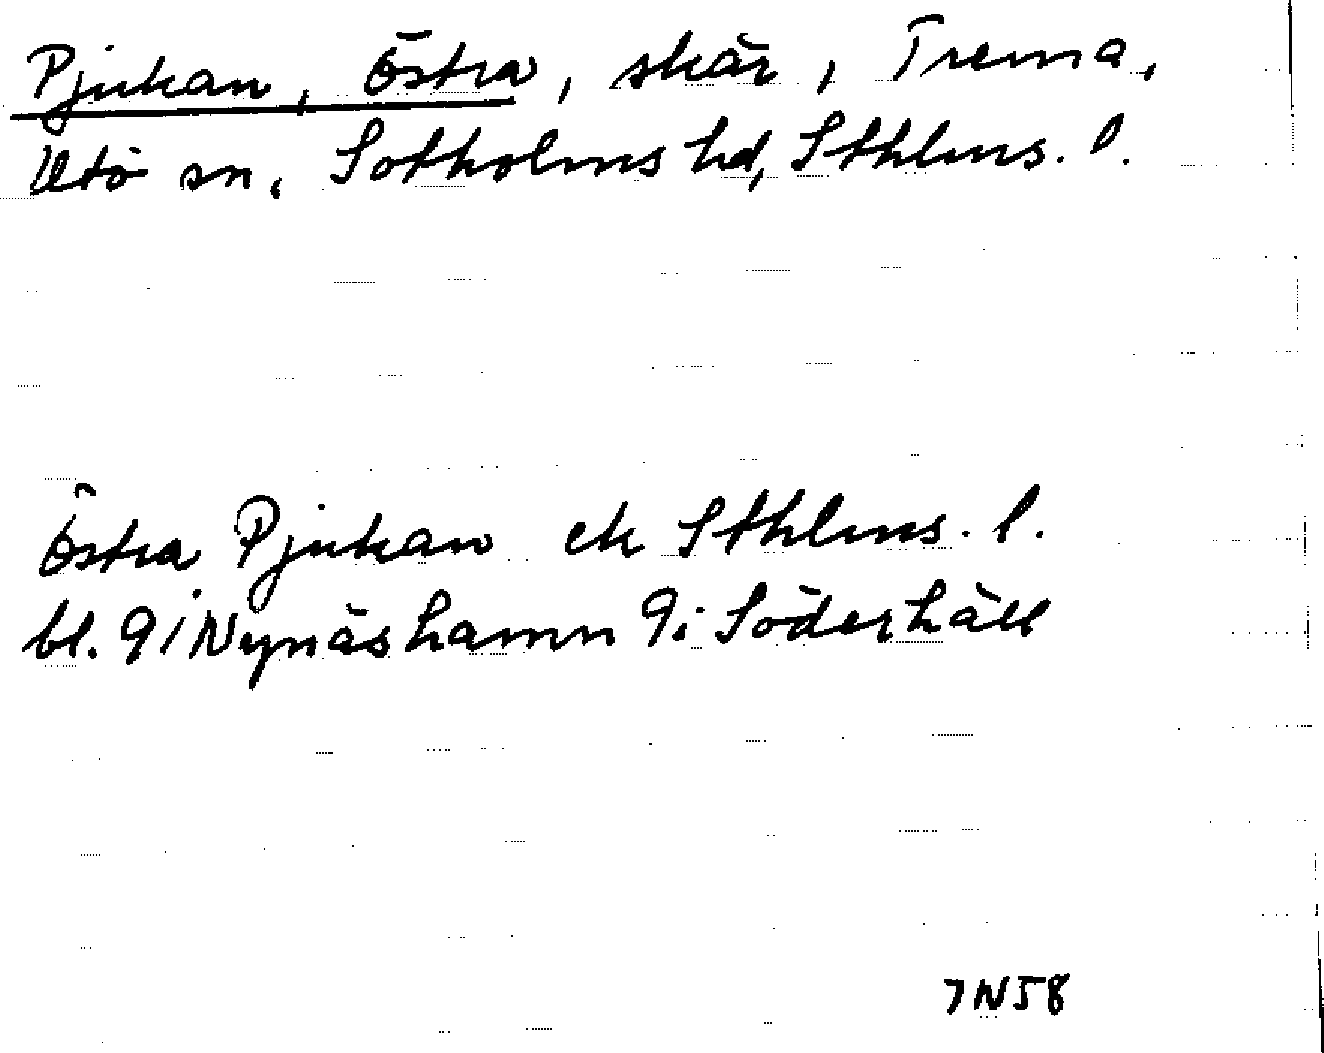 Pjukan, Östra, skär, Trema,
Utö sn, Sotholms hd, Sthlms. l.
Östra Pjukan ek Sthlms. l.
bl. 9i Nynäshamn 9i Söderhäll
7N58